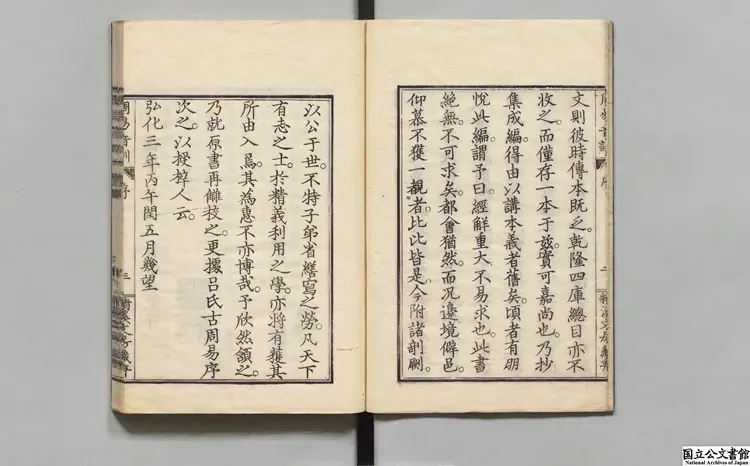 文則彼時傳本既乏。乾隆四庫總目亦不
收之。而僅存一本于玆。實可嘉尚也。乃抄
集成編。得由以講本義者舊矣。頃者有朋
悅此編。謂予曰。經觧重大。不易求也。此書
絕無不可求矣。都會猶然。而況邊境僻邑。
仰慕不獲一覩者。比比皆是。今附諸剞劂。
以公于世。不特子弟省繕寫之勞。凡天下
有志之士。於精義利用之學。亦將有獲其
所由入焉。其為惠不亦博哉。予欣然頷之。
乃就原書再讎校之。更據呂氏古周易序
次之。以授梓人云。
弘化三年丙午閏五月幾望
周易音訓 序 三
国立公文書館
National Archives of Japan